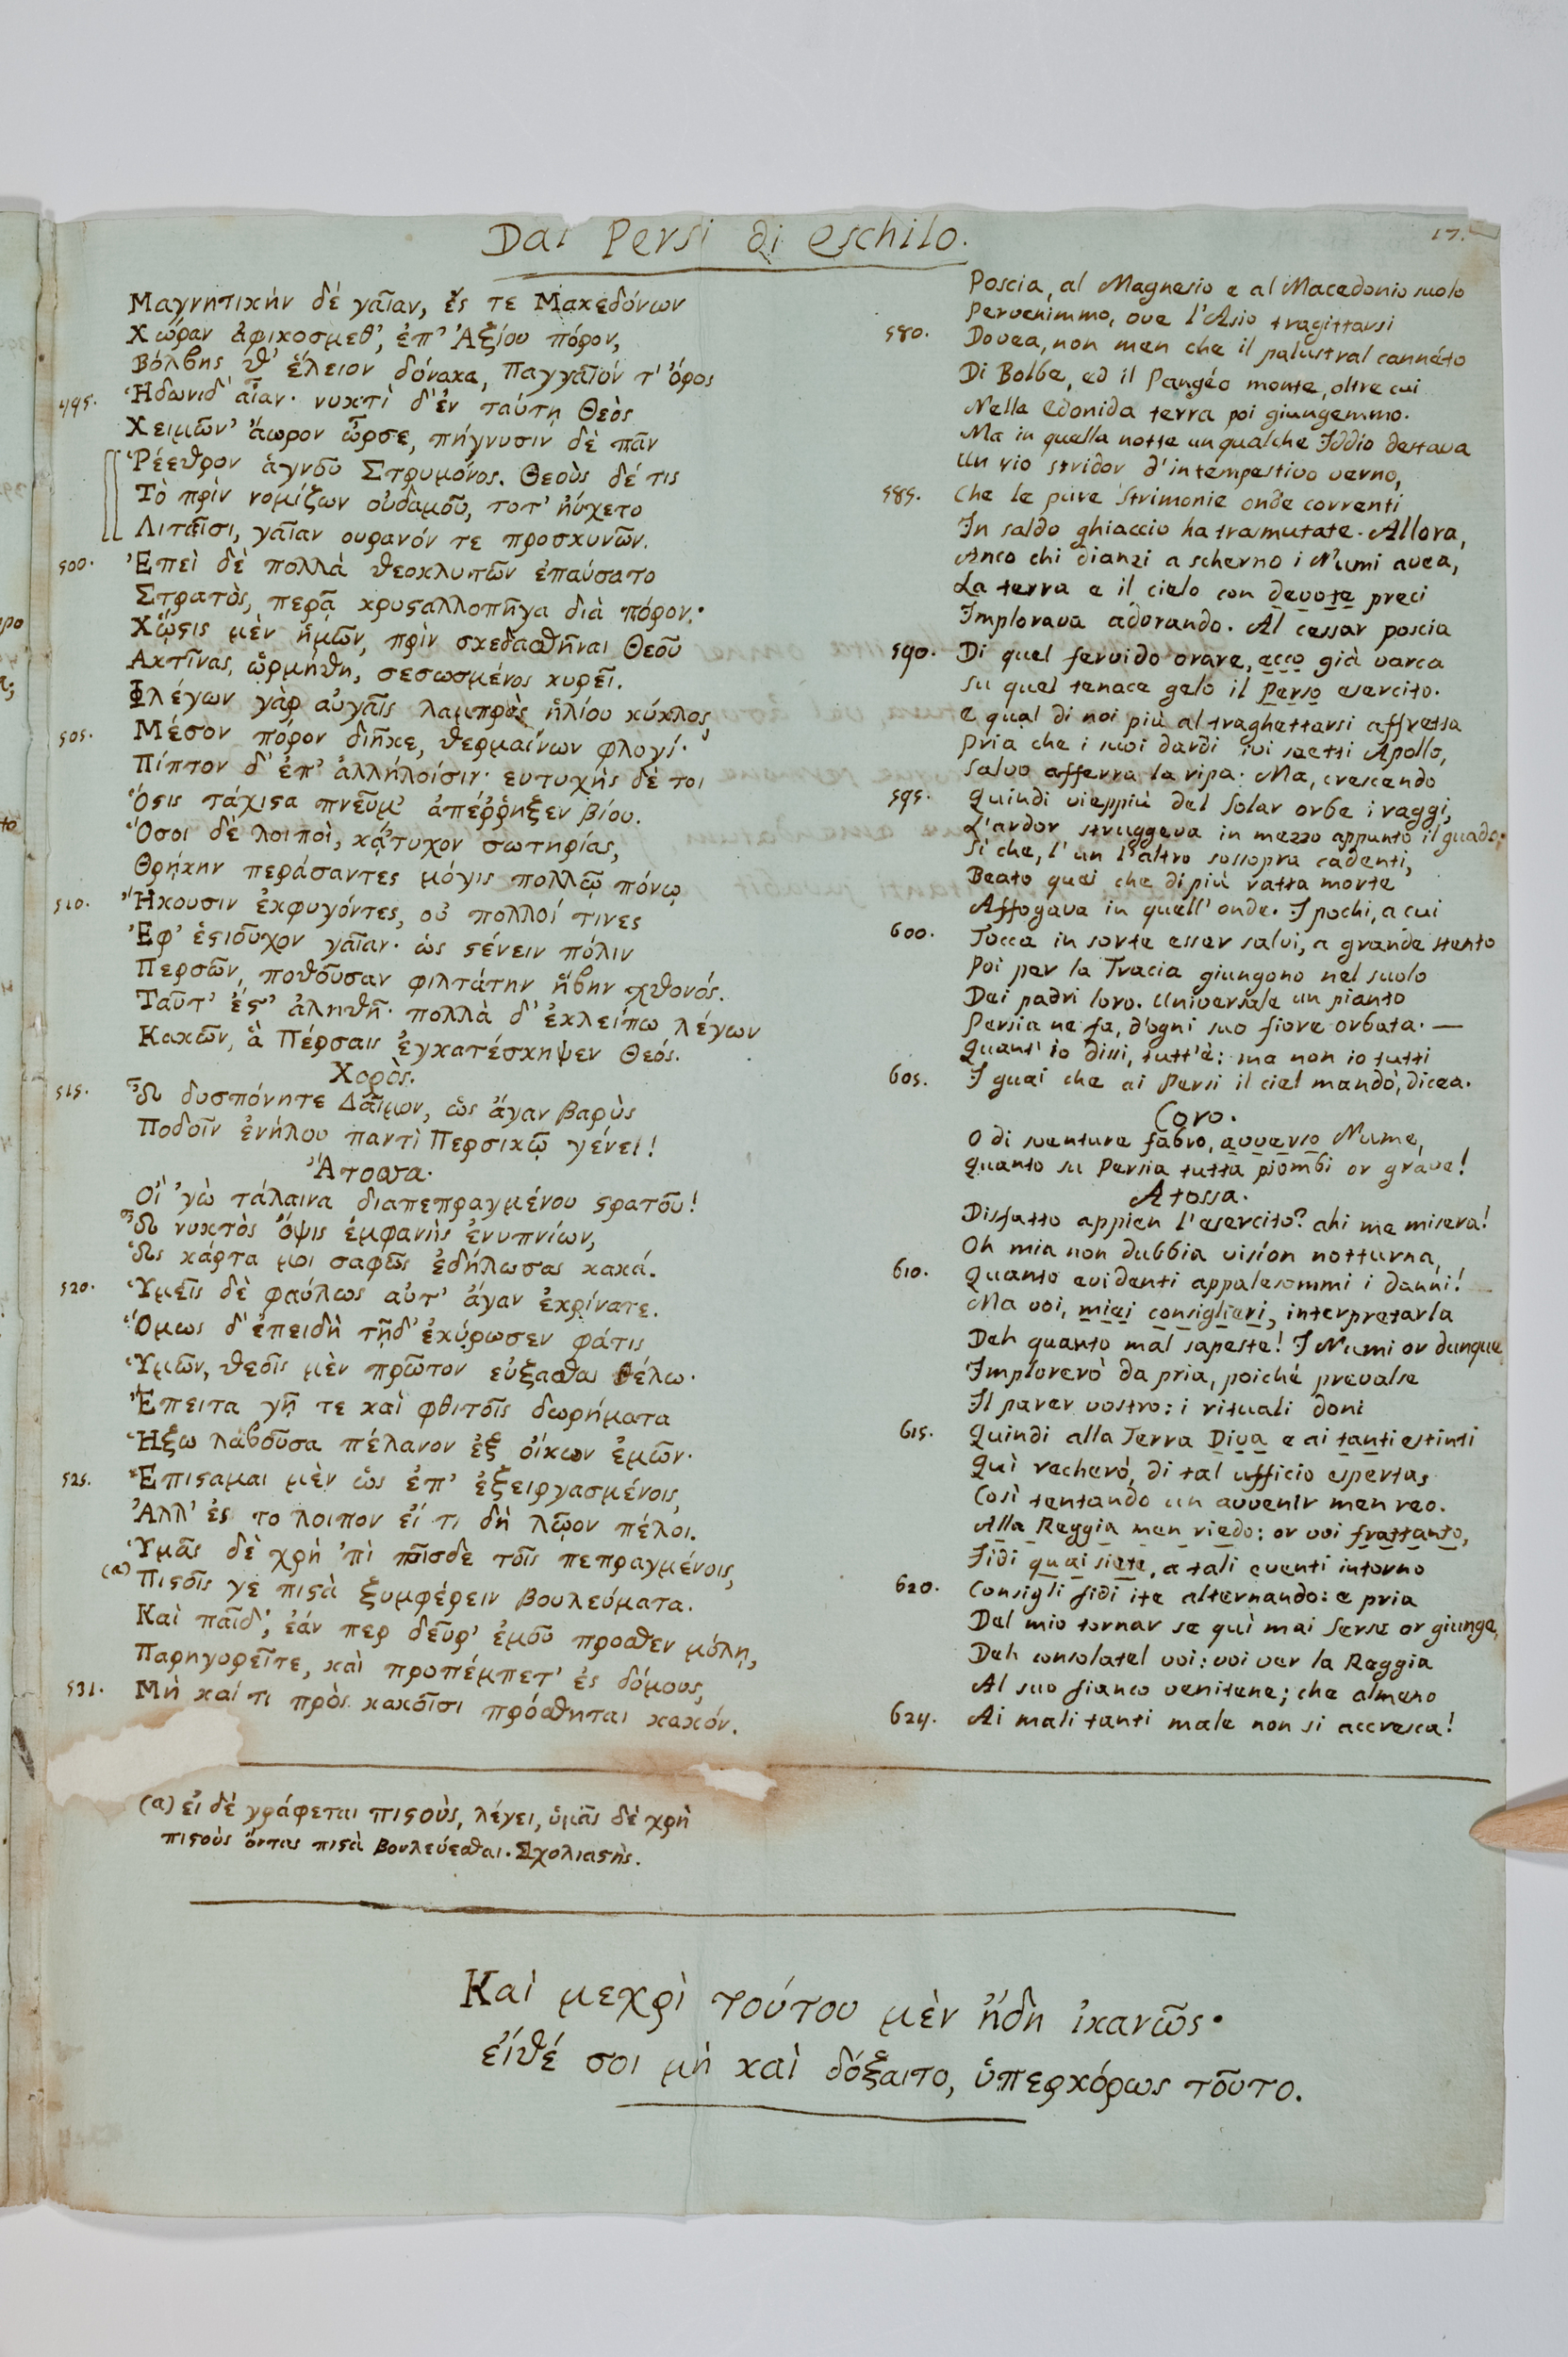 Dai Persi di Eschilo.
17.
Μαγνητικὴν δὲ γαῖαν, ἔς τε Μακεδόνων
Χώραν ἀφικοσμεθ', ἐπ' Ἀξίου πόρον,
Βόλβης θ' ἕλειον δόνακα, Παγγαῖόν τ' ὄρος
495. Ἡδωνίδ' αἶαν· νυκτὶ δ' ἐν ταύτῃ Θεὸς
Χειμῶν' ἄωρον ὦρσε, πήγνυσιν δὲ πᾶν
Ῥέεθρον ἁγνοῦ Στρυμόνος. Θεοὺς δέ τις
Τὸ πρὶν νομίζων οὐδαμοῦ, τοτ' ηὔχετο
Λιταῖσι, γαῖαν ουρανόν τε προσκυνῶν.
500. Ἐπεὶ δὲ πολλὰ θεοκλυτῶν ἐπαύσατο
Στρατὸς, περᾷ κρυϛαλλοπῆγα διὰ πόρον·
Χὤϛις μὲν ἡμῶν, πρὶν σκεδασθῆναι Θεοῦ
Ακτῖνας, ὡρμήθη, σεσωσμένος κυρεῖ.
Φλέγων γὰρ αὐγαῖς λαμπρὸς ἡλίου κύκλος,
505. Μέσον πόρον διῆκε, θερμαίνων φλογί·
Πίπτον δ' ἐπ' ἀλλήλοίσιν· ευτυχὴς δέ τοι
Ὅϛις τάχιϛα πνεῦμ' ἀπέῤῥηξεν βίου.
Ὅσοι δὲ λοιποὶ, κᾄτυχον σωτηρίας,
Θρῄκην περάσαντες μόγις πολλῷ πόνῳ
510. Ἥκουσιν ἐκφυγόντες, οὐ πολλοί τινες
Ἐφ' ἑϛιοῦχον γαῖαν· ὡς ϛένειν πόλιν
Περσῶν, ποθοῦσαν φιλτάτην ἥβην χθονός.
Ταῦτ' ἔϛ' ἀληθῆ· πολλὰ δ' ἐκλείπω λέγων
Κακῶν, ἃ Πέρσαις ἐγκατέσκηψεν Θεός.
Χορὸς.
515. Ὦ δυσπόνητε Δαῖμον, ὡς ἄγαν βαρὺς
Ποδοῖν ἐνήλου παντὶ Περσικῷ γένει!
Ἄτοσσα.
Οἲ 'γὼ τάλαινα διαπεπραγμένου ϛρατοῦ!
Ὦ νυκτὸς ὄψις ἐμφανὴς ἐνυπνίων,
Ὡς κάρτα μοι σαφῶς ἐδήλωσας κακά.
520. Ὑμεῖς δὲ φαύλως αὔτ' ἄγαν ἐκρίνατε.
Ὅμως δ' ἐπειδὴ τῇδ' ἐκύρωσεν φάτις
Ὑμῶν, θεοῖς μὲν πρῶτον εὔξασθαι θέλω·
Ἔπειτα γῇ τε καὶ φθιτοῖς δωρήματα
Ἥξω λαβοῦσα πέλανον ἐξ οἴκων ἐμῶν·
525. Ἐπίϛαμαι μὲν ὡς ἐπ' ἐξειργασμένοις,
Ἀλλ' ἐς το λοιπον εἴ τι δὴ λῷον πέλοι.
Ὑμᾶς δὲ χρὴ 'πὶ τοῖσδε τοῖς πεπραγμένοις,
(a) Πιϛοῖς γε πιϛὰ ξυμφέρειν βουλεύματα.
Καὶ παῖδ', ἐάν περ δεῦρ' ἐμοῦ προσθεν μόλῃ,
Παρηγορεῖτε, καὶ προπέμπετ' ἐς δόμους,
531. Μὴ καί τι πρὸς κακοῖσι πρόσθηται κακόν.
Poscia, al Magnesio e al Macedonio suolo
Pervenimmo, ove l'Asio tragittarsi
580. Dovea, non men che il palustral cannéto
Di Bolbe, ed il Pangéo monte, oltre cui
Nella Edonida terra poi giungemmo.
Ma in quella notte un qualche Iddio destava
Un rio stridor d'intempestivo verno,
585. Che le pure Strimonie onde correnti
In saldo ghiaccio ha tramutate. Allora,
Anco chi dianzi a scherno i Numi avea,
La terra e il cielo con devote preci
Implorava adorando. Al cessar poscia
590. Di quel fervido orare, ecco già varca
Su quel tenace gelo il Perso esercito.
E qual di noi più al traghettarsi affretta
Pria che i suoi dardi ivi saetti Apollo,
Salvo afferra la ripa. Ma, crescendo
595. Quindi vieppiù del Solar orbe i raggi,
L'ardor struggeva in mezzo appunto il guado;
Sì che, l'un l'altro sossopra cadenti,
Beato quei che di più ratta morte
Affogava in quell'onde. I pochi, a cui
600. Tocca in sorte esser salvi, a grande stento
Poi per la Tracia giungono nel suolo
Dei padri loro. Universale un pianto
Persia ne fa, d'ogni suo fiore orbata. —
Quant' io dissi, tutt'è: ma non io tutti
605. I guai che ai Persi il ciel mandò, dicea.
Coro.
O di sventure fabro, avverso Nume,
Quanto su Persia tutta piombi or grave!
Atossa.
Disfatto appien l'esercito? ahi me misera!
Oh mia non dubbia visíon notturna,
610. Quanto evidenti appalesommi i danni!
Ma voi, miei consiglieri, interpretarla
Deh quanto mal sapeste! I Numi or dunque
Implorerò da pria, poichè prevalse
Il parer vostro: i rituali doni
615. Quindi alla Terra Diva e ai tanti estinti
Quì recherò, di tal ufficio esperta,
Così tentando un avvenir men reo.
Alla Reggia men riedo: or voi frattanto,
Fidi quai siete, a tali eventi intorno
620. Consigli fidi ite alternando: e pria
Del mio tornar se quì mai Serse or giunge,
Deh consolatel voi: voi ver la Reggia
Al suo fianco venitene; che almeno
624. Ai mali tanti male non si accresca!
(a) εἰ δὲ γράφεται πιϛοὺς, λέγει, ὑμᾶς δὲ χρὴ
πιϛοὺς ὄντας πιϛὰ βουλεύεσθαι. Σχολιαϛὴς.
Καὶ μεχρὶ τούτου μὲν ἤδη ἱκανῶς·
εἴθέ σοι μὴ καὶ δόξαιτο, ὑπερκόρως τοῦτο.